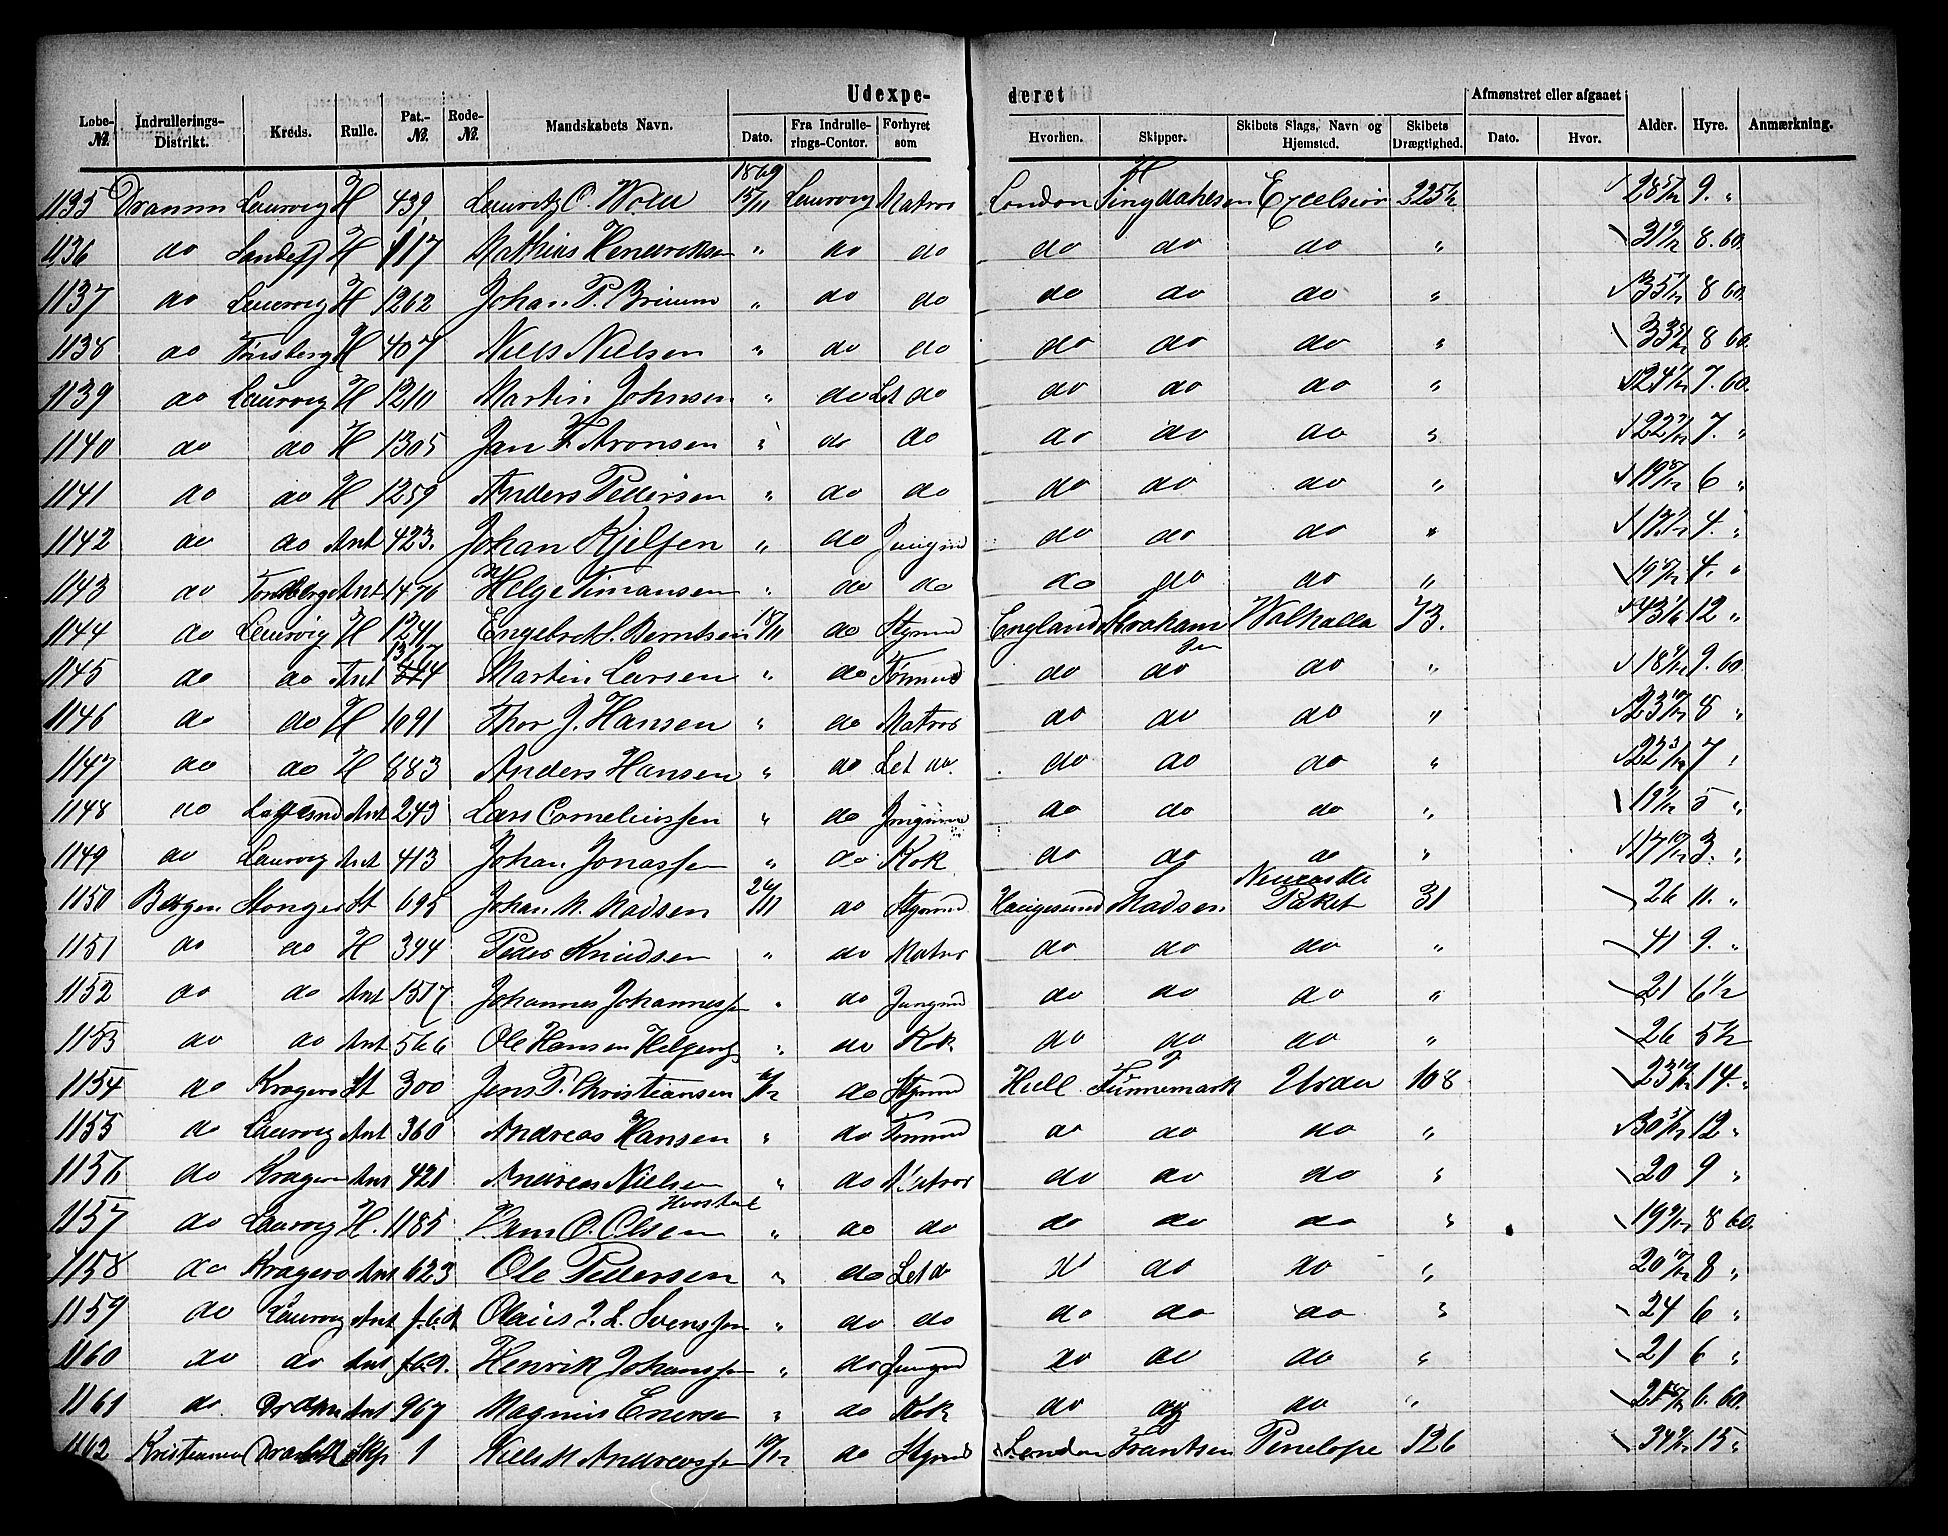 Udexpe- deret
Lobe- № Indrullerings-Distrikt. Kreds. Rulle. Pat.- № Rode- № Mandskabets Navn. Dato. Fra Indrulle-rings-Contor. Forhyret som Hvorhen. Skipper. Skibets Slags, Navn og Hjemsted. Skibets Drægtighed. Afmønstret eller afgaaet Dato. Hvor. Alder. Hyre. Anmærkning.
1869
1135 Dramm Laurvig H 439 Lauritz C. 15/11 Laurvig Matros London Tingdahlsen Excelsior 225½ 9. "
1136 do H 117 Mathias Hendriksen " do do do do do " 8. 60.
1137 do Laurvig H 1262 Johan P. " do do do do do " 8 60.
1138 do Tønsberg H 407 Niels Nielsen " do do do do do " 8 60.
1139 do Laurvig H 1210 Martin Johnsen " do Let do do do do " 7. 60.
1140 do do H 1305 Jan F. Aronsen " do do do do do " 7. "
1141 do do H 1259 Anders Pedersen " do do do do do " 6 "
1142 do do Ant 423. Johan Kjelsen " do Jungmd do do do " 4. "
1143 do Ant 1470 Helge Timansen " do do do do do " 4. "
1144 do Laurvig H 1241 Engebrekt S. Berntsen 18/11 do Styrmd England Abrahamsen Walhalla 73. 12 "
1145 do do Ant 1317 Martin Larsen " do Tømmd do do do " 9. 60.
1146 do do H 1091 Thor J. Hansen " do Matros do do do " 8 "
1147 do do H 883 Anders Hansen " do Let do. do do do " 7 "
1148 do Ant 243 Lars Corneliussen " do Jungmd do do do " 5 "
1149 do Laurvig Ant 413 Johan Jonassen " do Kok do do do " 3. "
1150 Bergen St 695 Johan M. Madsen 24/11 do Styrmd Haugesund Madsen Paket 31 26 11. "
1151 do do H 394 Peder Knudsen " do Matros do do do " 41 9. "
1152 do do Ant 1517 Johannes Johannessen " do Jungmd do do do " 21 6½
1153 do do Ant 566 Ole Hansen " do Kok do do do " 26 5½
1154 do Kragerø St 300 Jens P. Christiansen 6/12 do Styrmd Hull Tinnemark Urda 108 14. "
1155 do Laurvig Ant 360 Andreas Hansen " do Tømmd do do do " 12 "
1156 do Kragerø Ant 421 Andreas Nielsen " do Matros do do do " 20 9 "
1157 do Laurvig H. 1185 O. Olsen " do do do do do " 8 60.
1158 do Kragerø Ant 623 Ole Pedersen " do Let do do do do " 8 "
1159 do Laurvig Ant Olaus Svenssen " do do do do do " 24 6 "
1160 do do Ant Henrik Johanssen " do Jungmd do do do " 21 6 "
1161 do Dramn Ant 967 Magnus " do Kok do do do " 6. 60.
1162 Kristiania 1 Niels M Andreassen 10/12 do Styrmd London Frantsen Penelope 126 15 "